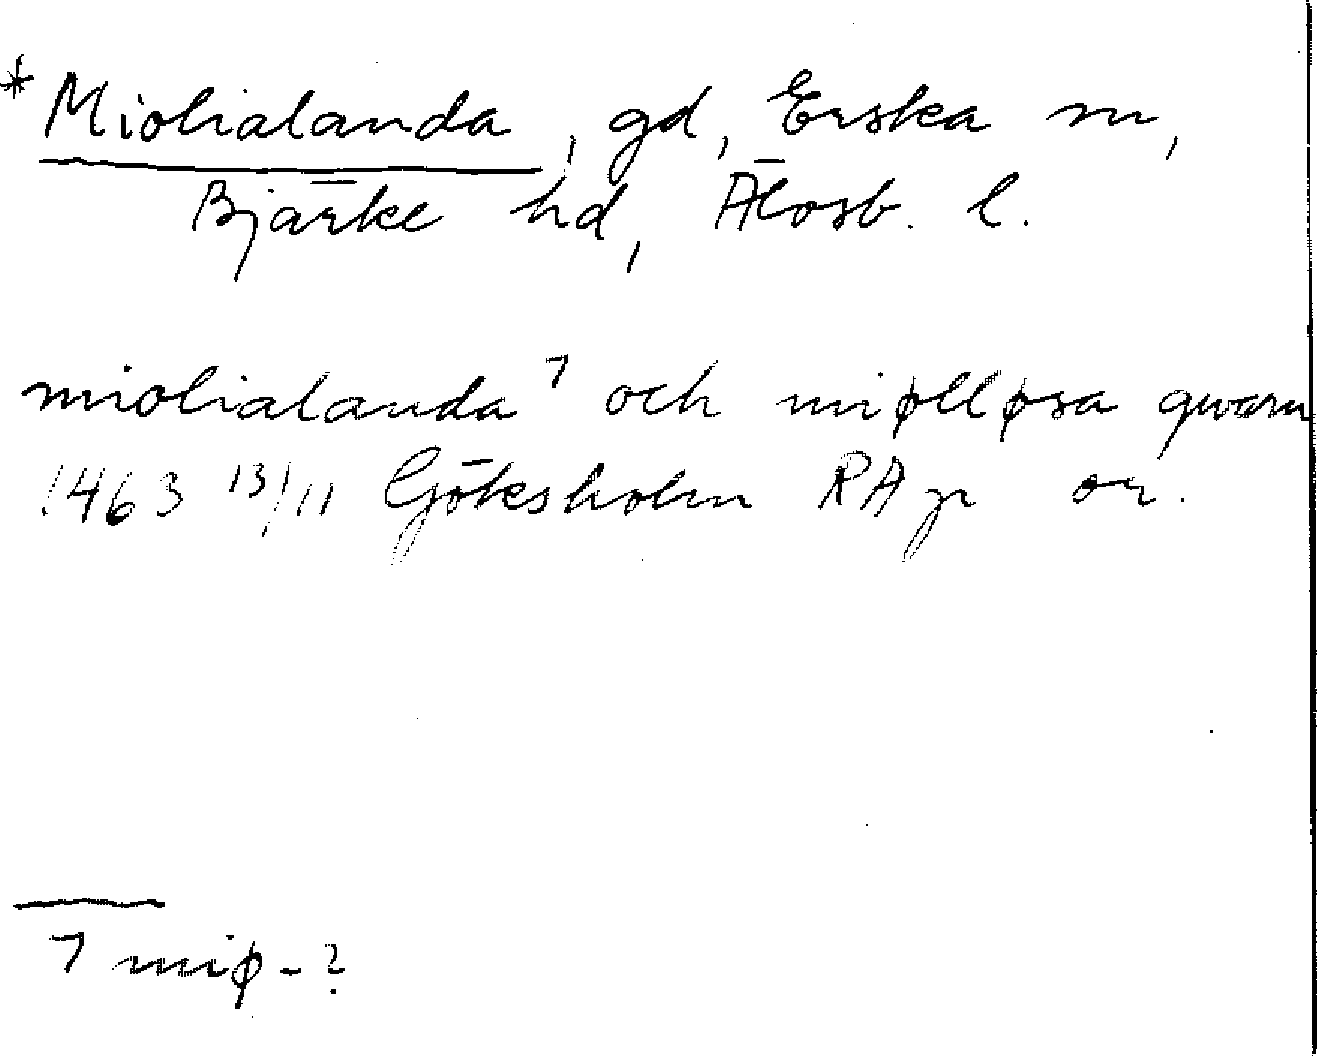 *Miolialanda, gd, Erska sn,
Bjärke hd, Älvsb. l.
miolialanda⁊ och miølløsa qwarn
1463 13/11 Göksholm RAp or.
⁊ miø-?